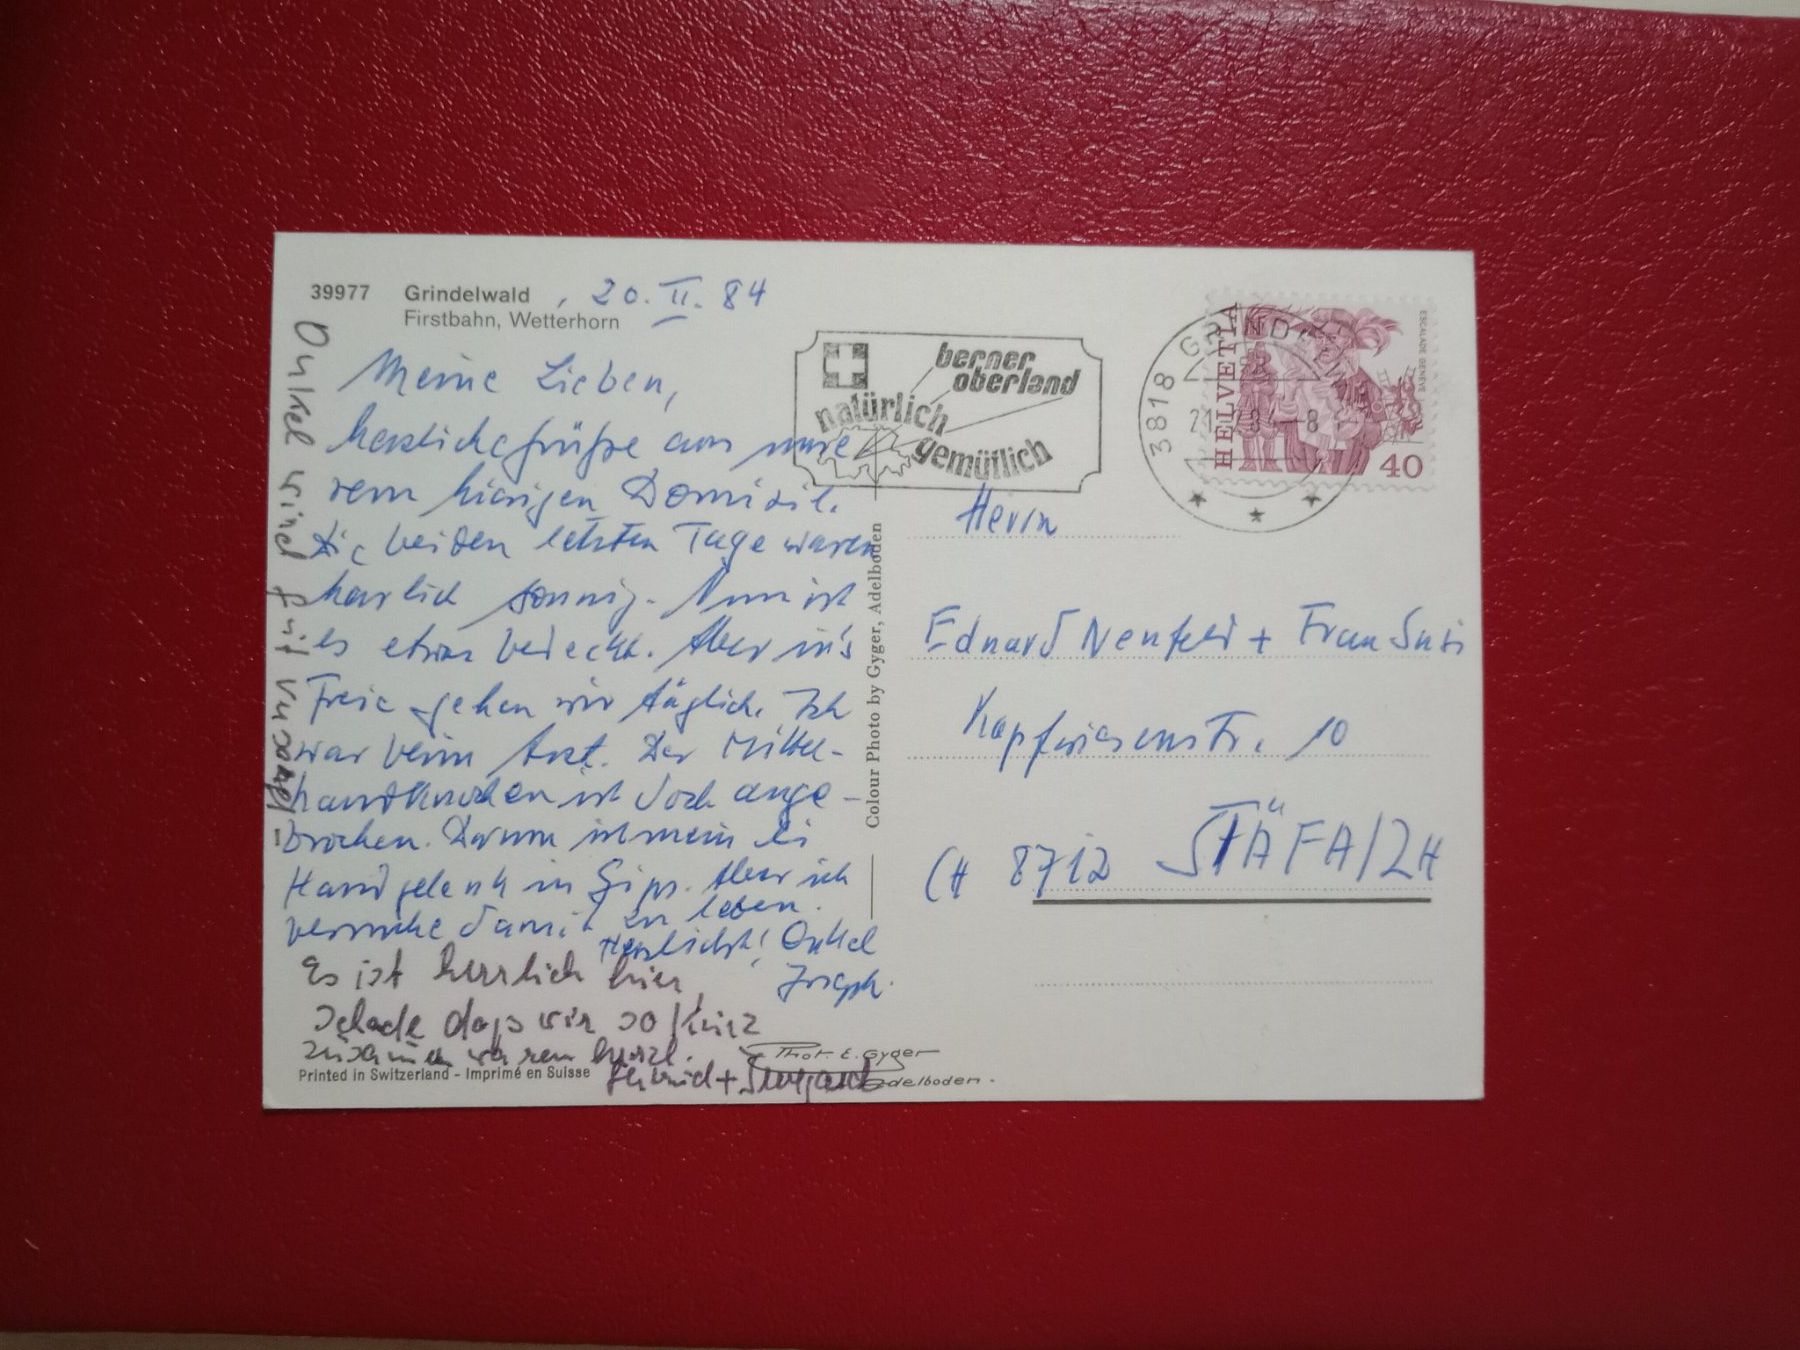 39977 Grindelwald , 20. II. 84
Firstbahn, Wetterhorn
Meine Lieben,
herzliche Grüße aus unse
rem hiesigen Domizil.
Die beiden letzten Tage waren
herrlich sonnig. Nun ist
es etwas bedeckt. Aber in's
Freie gehen wir täglich. Ich
war beim Arzt. Der Mittel-
handknochen ist doch ange-
brochen. Darum ist mein li
Handgelenk in Gips. Aber ich
versuche damit zu leben.
Herzlichst! Onkel
Joseph.
Es ist herrlich hier,
schade daß wir so kurz
zusammen waren herzl.
+ Irmgard
Onkel wird gut
Printed in Switzerland - Imprimé en Suisse
Phot. E. Gyger
Adelboden.
Colour Photo by Gyger, Adelboden
berner
oberland
natürlich
gemütlich
3818 GRINDELWALD
21.-2.84-8
HELVETIA
ESCALADE GENÈVE
40
Herrn
Eduard Neufeld + Frau Susi
Kapfwiesenstr. 10
CH 8712 STÄFA/ZH